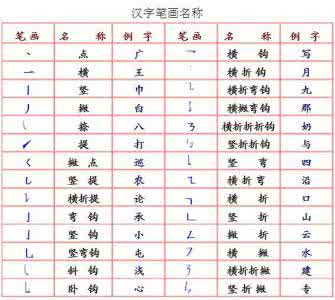 汉字笔画名称
笔画 名称 例字 笔画 名称 例字
丶 点 广 乛 横钩 写
一 横 王 𠃌 横折钩 月
丨 竖 巾 ㇈ 横折弯钩 九
丿 撇 白 ㇌ 横撇弯钩 那
㇏ 捺 八 ㇡ 横折折折钩 奶
㇀ 提 打 ㇉ 竖折折钩 与
𡿨 撇点 巡 ㇄ 竖弯 四
𠄌 竖提 农 ㇍ 横折弯 沿
㇊ 横折提 论 𠃍 横折 口
㇁ 弯钩 承 𠃊 竖折 山
亅 竖钩 小 𠃋 撇折 云
乚 竖弯钩 屯 ㇇ 横撇 水
㇂ 斜钩 浅 ㇋ 横折折撇 建
㇃ 卧钩 心 ㇞ 竖折撇 专